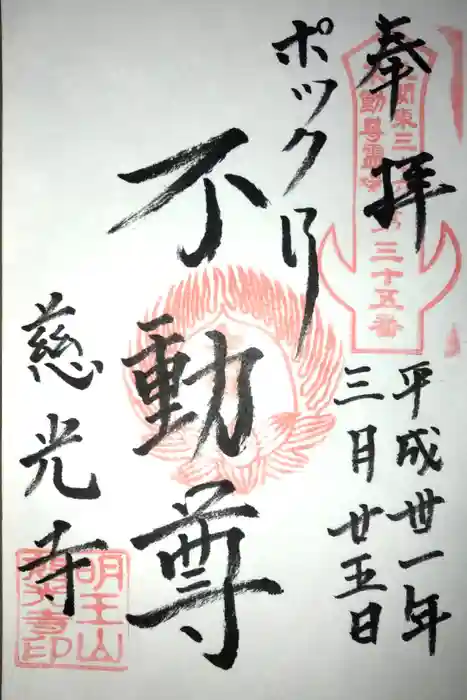 奉拝
関東三十六
不動尊霊場
三十五番
平成丗一年
三月廿五日
ポックリ
不動尊
慈光寺
明王山
慈光寺印